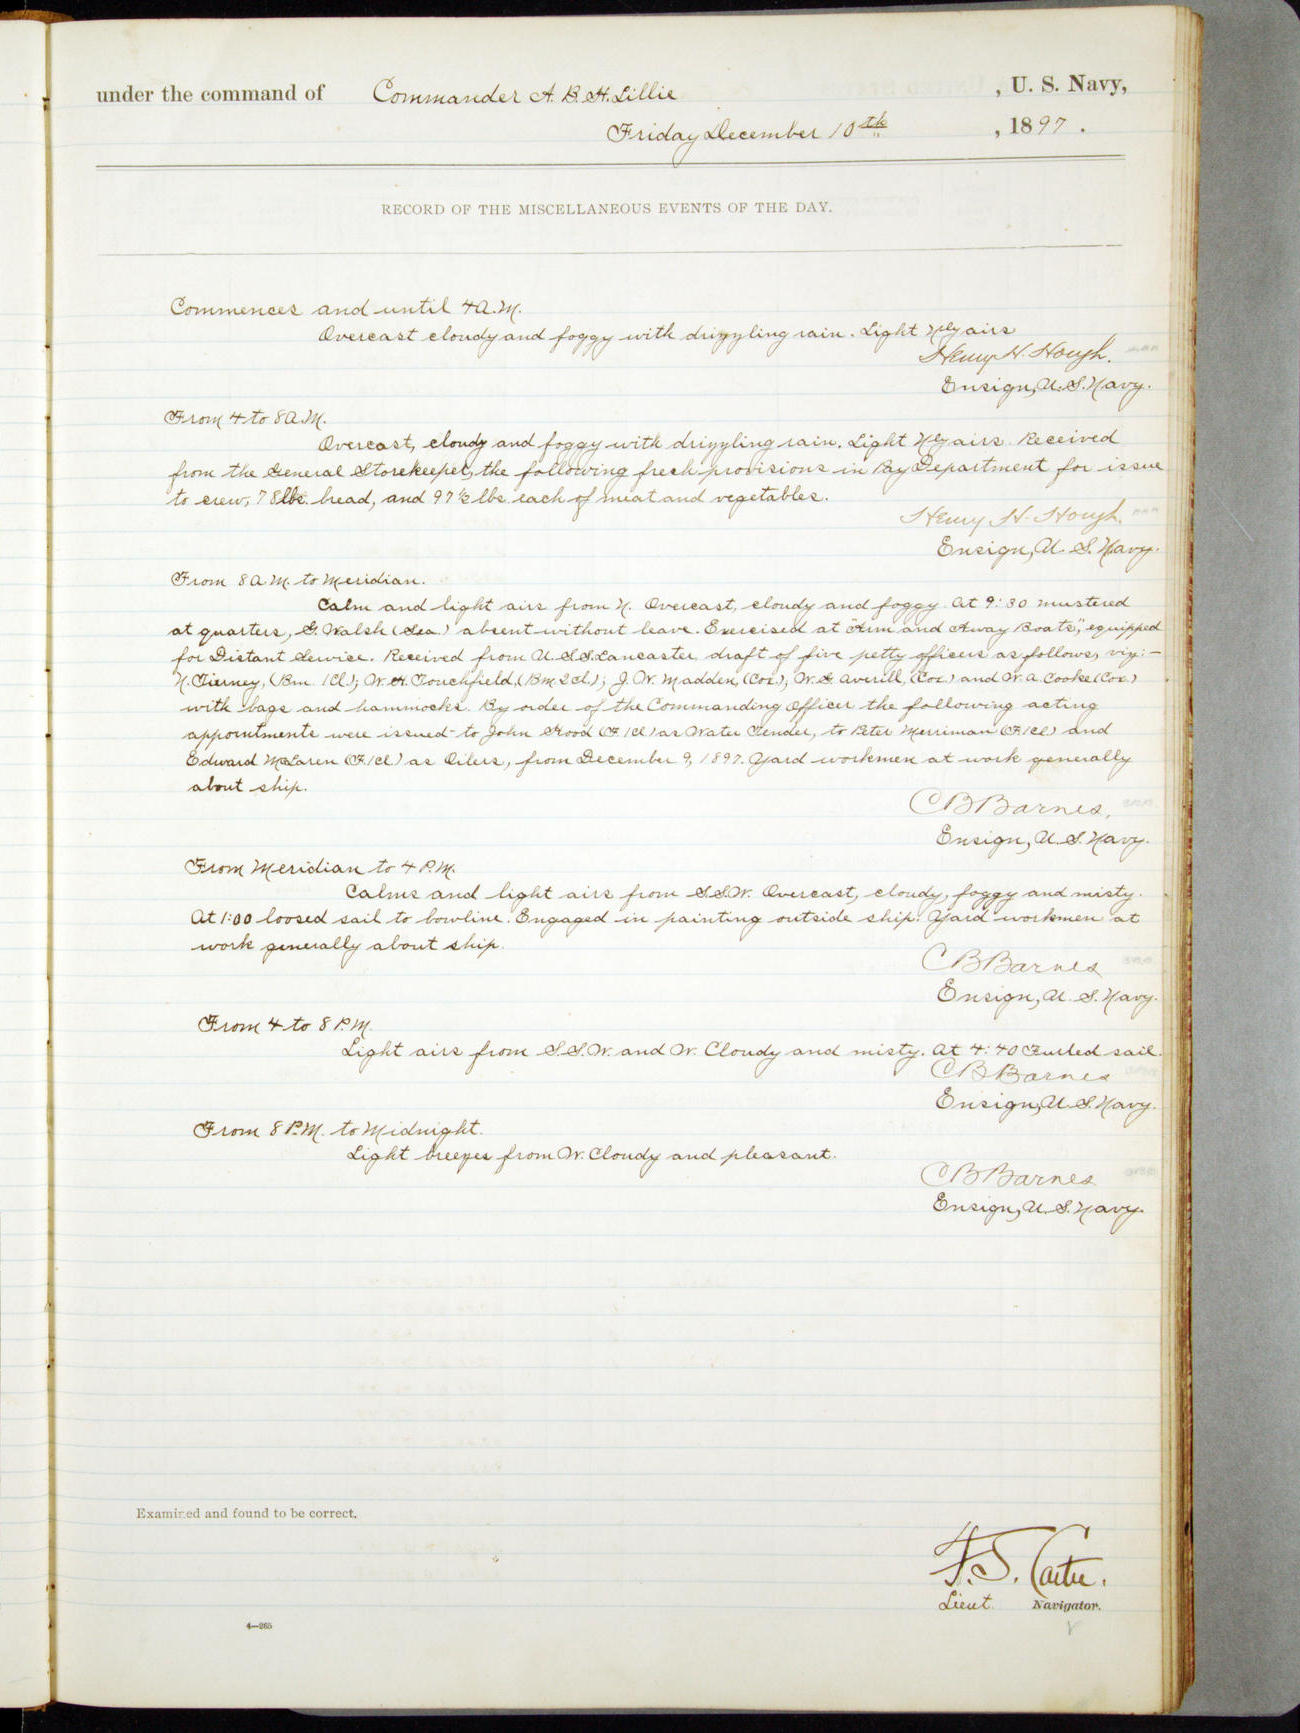 under the command of Commander A. B. H. Lillie, U. S. Navy,
Friday December 10th, 1897.
RECORD OF THE MISCELLANEOUS EVENTS OF THE DAY.
Commences and until 4 A.M.
Overcast cloudy and foggy with drizzling rain. Light N'ly airs
Henry H. Hough.
Ensign, U.S. Navy.
From 4 to 8 A.M.
Overcast, cloudy and foggy with drizzling rain. Light N'ly airs. Received
from the General Storekeeper, the following fresh provisions in Pay Department for issue
to crew, 78 lbs. bread, and 97 1/2 lbs. each of meat and vegetables.
Henry H. Hough.
Ensign, U. S. Navy.
From 8 A.M. to Meridian.
Calm and light airs from N. Overcast, cloudy and foggy. At 9:30 mustered
at quarters, G. Walsh (Sea.) absent without leave. Exercised at "Arm and Away Boats", equipped
for Distant Service. Received from U.S.S. Lancaster draft of five petty officers as follows, viz:-
N. Tierney, (Bm. 1Cl.); W. H. Touchfield, (Bm 2cl.); J. W. Madden, (Cox.); W. L. Averill, (Cox.) and W. A. Cooke (Cox.)
with bags and hammocks. By order of the Commanding Officer the following acting
appointments were issued to John Hood (F. 1Cl.) as Water Tender, to Peter Merriman (F. 1Cl) and
Edward McLaren (F. 1Cl.) as Oilers, from December 9, 1897. Yard workmen at work generally
about ship.
C B Barnes,
Ensign, U. S. Navy.
From Meridian to 4 P.M.
Calms and light airs from S.S.W. Overcast, cloudy, foggy and misty.
At 1:00 loosed sail to bowline. Engaged in painting outside ship. Yard workmen at
work generally about ship.
C B Barnes
Ensign, U. S. Navy.
From 4 to 8 P.M.
Light airs from S.S.W. and W. Cloudy and misty. At 4:40 Furled sail.
C B Barnes
Ensign, U. S. Navy.
From 8 P.M. to Midnight.
Light breezes from W. Cloudy and pleasant.
C B Barnes
Ensign, U. S. Navy.
Examined and found to be correct.
F. S. Carter.
Lieut. Navigator.
4—265